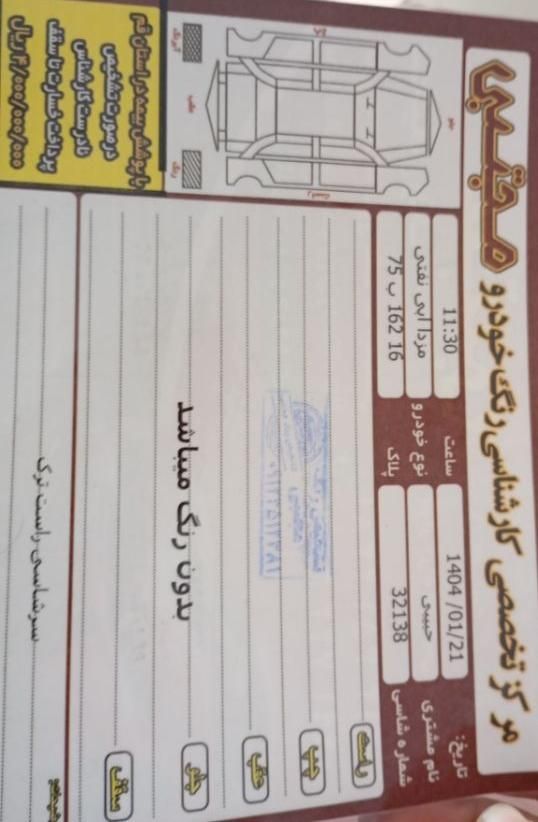 مرکز تخصصی کارشناسی رنگ خودرو مجتبی
تاریخ: 1404/01/21
ساعت 11:30
نام مشتری حبیبی
نوع خودرو مزدا آبی نفتی
شماره شاسی 32138
پلاک 75 ب 162 16
راست
چپ
عقب
جلو
بدون رنگ میباشد
سقف
سرشاسی راست ترک
جلو
عقب
راست
رنگ
با پوشش بیمه در استان قم
در صورت تشخیص
نادرست کارشناس
پرداخت خسارت تا سقف
۴/۰۰۰/۰۰۰/۰۰۰ ریال